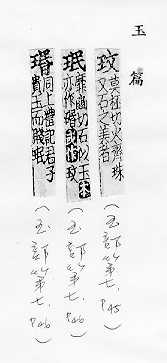 玉篇
玟 莫杯切火齊珠
又石之美者
(玉部公第七. P45)
珉 靡隕切石似玉
亦作 玟 本
(玉部公第七. P46)
㻉 同上禮記君子
貴玉而賤珉
(玉部公第七. P46)